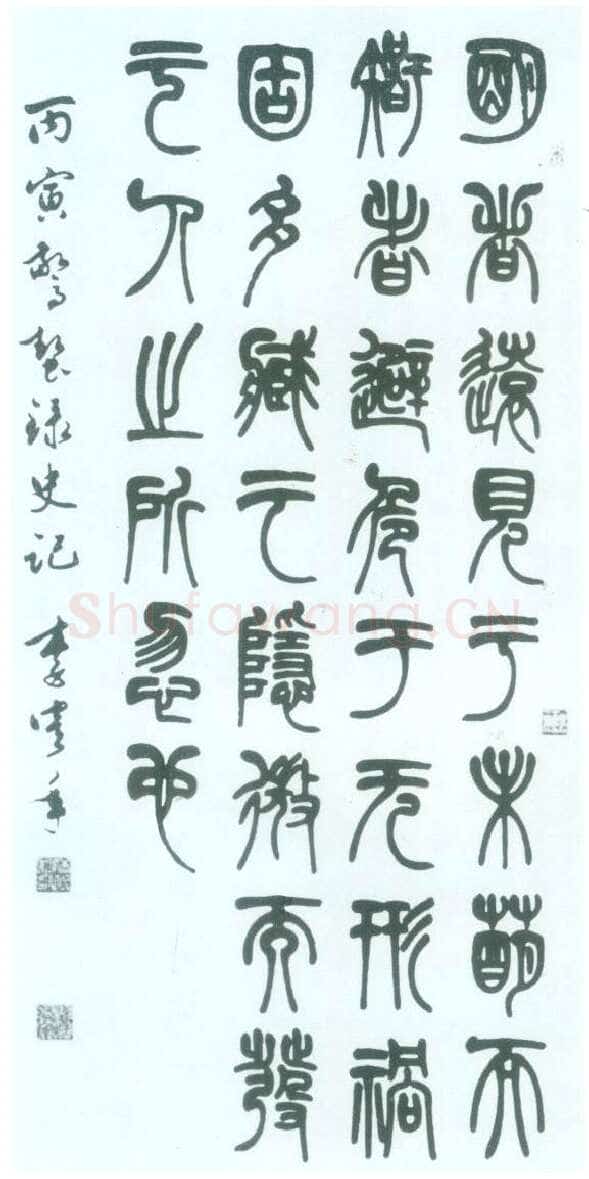 明者遠見于未萌而
智者避危于无形禍
固多臧于隱微而發
于人之所忽也
丙寅驚蟄録史記 李
Shufawang.CN